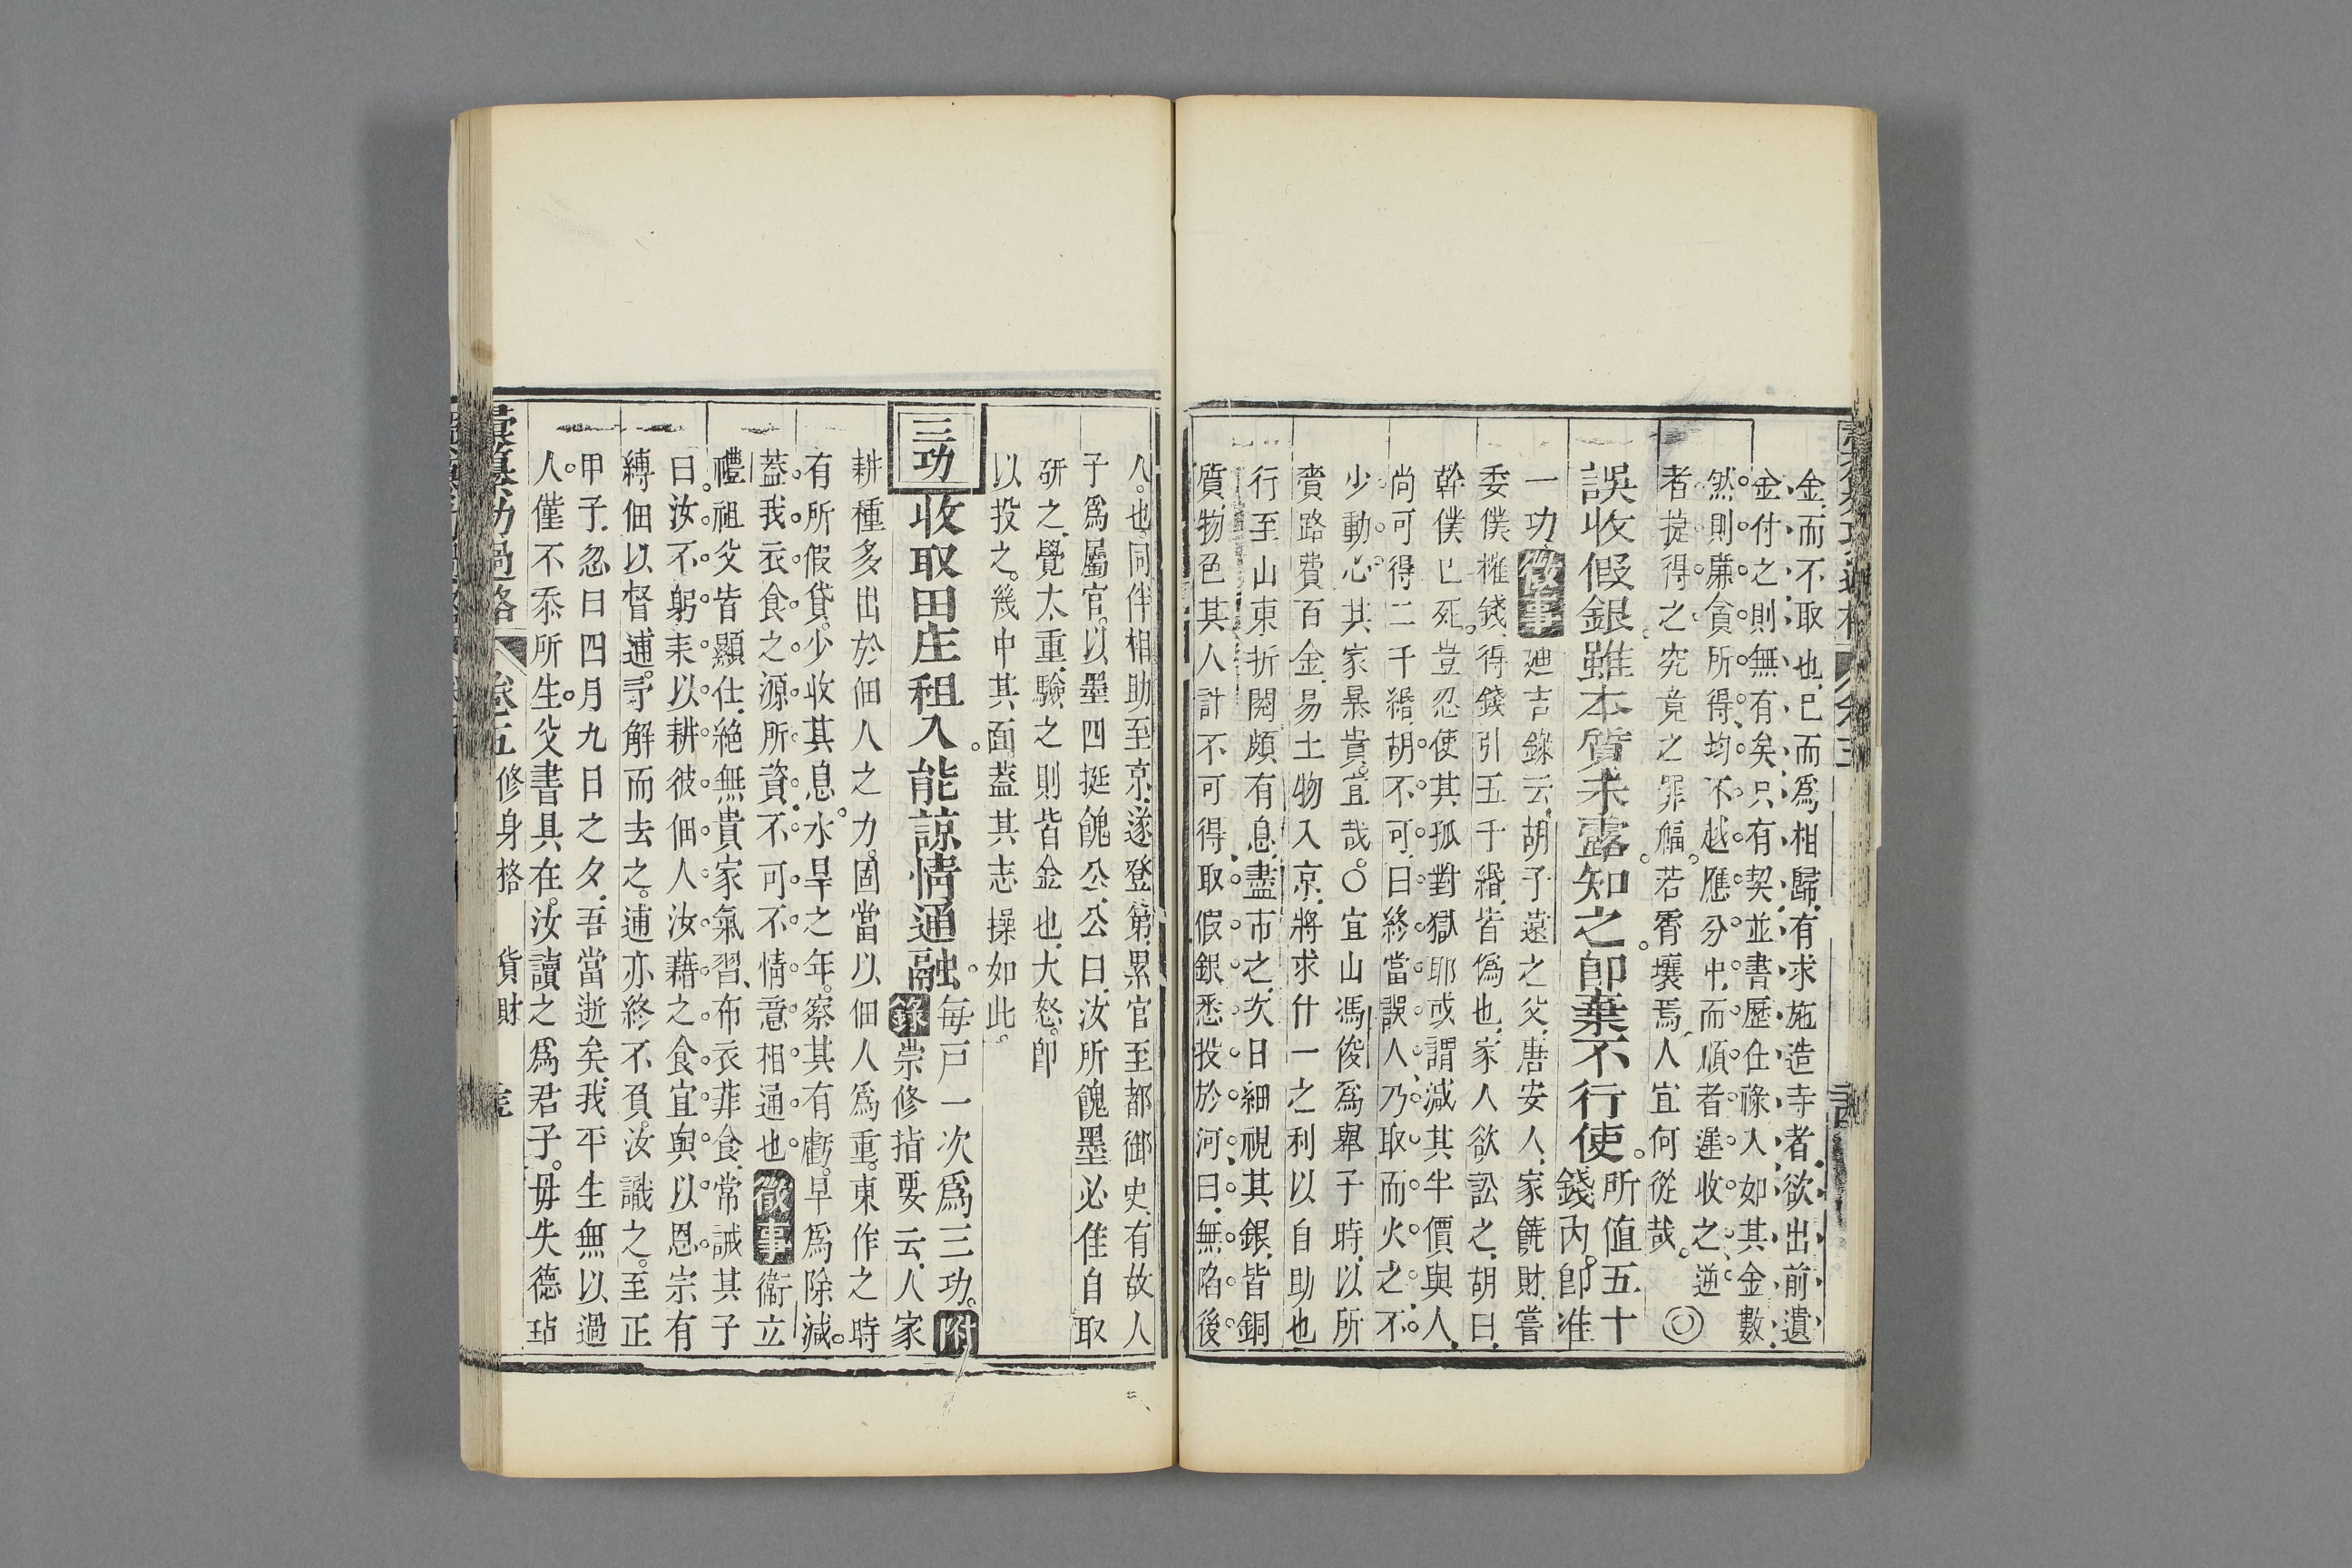 金而不取也已而爲相歸有求施造寺者欲出前遺
金付之則無有矣只有契並書歷仕祿入如其金數
然則廉貪所得均不越應分中而順者遲收之逆
者㨗得之究竟之罪福若霄壤焉人宜何從哉 ◎
誤收假銀雖本質未露知之卽棄不行使所值五十
錢內卽准
一功徵事廸吉錄云胡子遠之父唐安人家饒財嘗
委僕榷錢得錢引五千緡皆僞也家人欲訟之胡曰
幹僕已死豈忍使其孤對獄耶或謂減其半價與人
尚可得二千緡胡不可曰終當誤人乃取而火之不
少動心其家暴貴宜哉○宜山馮俊爲舉子時以所
賫路費百金易土物入京將求什一之利以自助也
行至山東折閱頗有息盡市之次日細視其銀皆銅
質物色其人計不可得取假銀悉投於河曰無陷後
人也同伴相助至京遂登第累官至都御史有故人
子爲屬官以墨四挺餽公公曰汝所餽墨必佳自取
研之覺太重驗之則皆金也大怒卽
以投之幾中其面蓋其志操如此
三功
收取田庄租入能諒情通融每戸一次爲三功附
錄崇修指要云人家
耕種多出於佃人之力固當以佃人爲重東作之時
有所假貸少收其息水旱之年察其有虧早爲除減
蓋我衣食之源所資不可不情意相通也徵事衛立
禮祖父皆顯仕絕無貴家氣習布衣菲食常誡其子
曰汝不躬耒以耕彼佃人汝藉之食宜與以恩宗有
縛佃以督逋予解而去之逋亦終不負汝識之至正
甲子忽曰四月九日之夕吾當逝矣我平生無以過
人僅不忝所生父書具在汝讀之爲君子毋失德玷
彙纂功過格 卷五 修身格 貨財